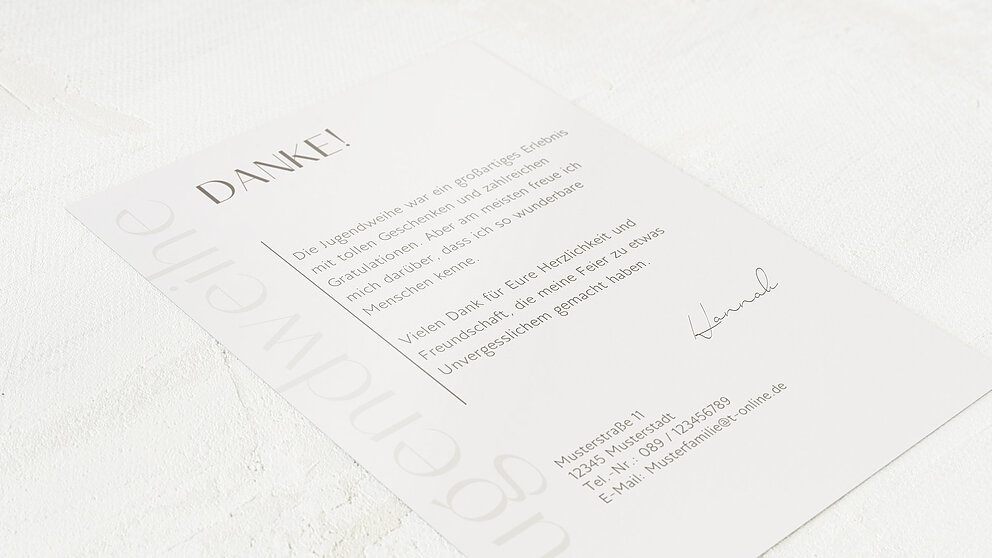 DANKE!
Die Jugendweihe war ein großartiges Erlebnis
mit tollen Geschenken und zahlreichen
Gratulationen. Aber am meisten freue ich
mich darüber, dass ich so wunderbare
Menschen kenne.
Vielen Dank für Eure Herzlichkeit und
Freundschaft, die meine Feier zu etwas
Unvergesslichem gemacht haben.
Hannah
Musterstraße 11
12345 Musterstadt
Tel.-Nr.: 089 / 123456789
E-Mail: Musterfamilie@t-online.de
ugendweihe